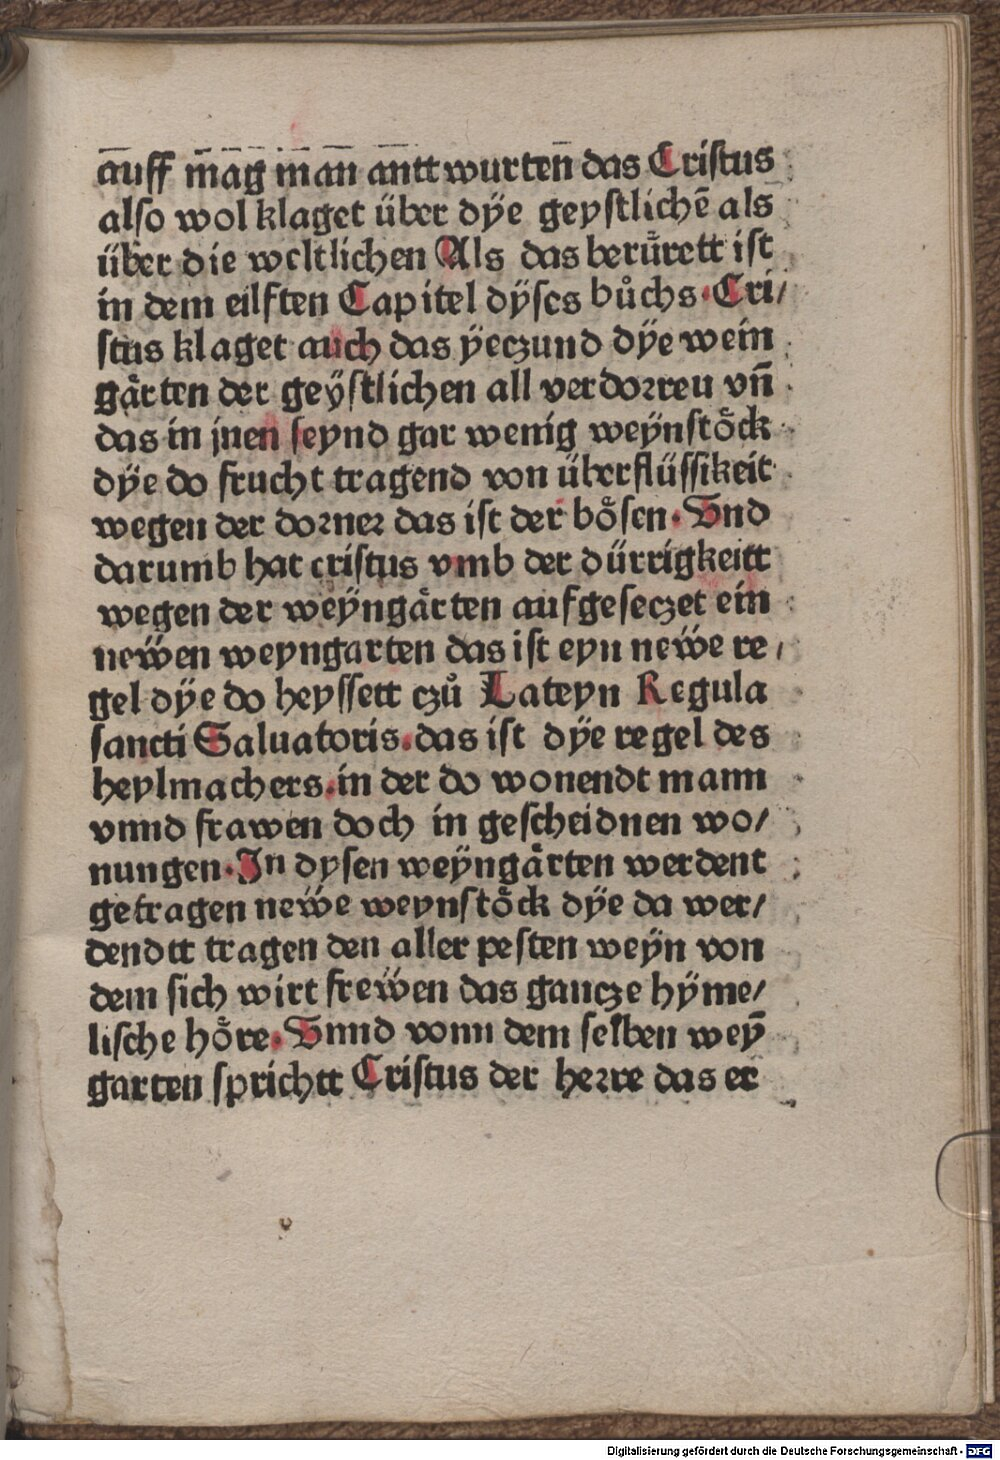 auff mag man antt wurten das Cristus
also wol klaget über dÿe geystlichē als
über die weltlichen Als das berůrett ist
in dem eilften Capitel dÿses bůchs. Cri/
stus klaget auch das ÿeczund dÿe wein
gårten der geÿstlichen all verdorreu vn̄
das in jnen seynd gar wenig weÿnsto̊ck
dÿe do frucht tragend von überflüssikeit
wegen der dorner das ist der bo̊sen. Vnd
darumb hat cristus vmb der dürrigkeitt
wegen der weÿngårten aufgeseczet ein
newën weyngarten das ist eyn newë re/
gel dÿe do heyssett czů Lateyn Regula
sancti Saluatoris. das ist dÿe regel des
heylmachers. in der do wonendt mann
vnnd frawen doch in gescheidnen wo/
nungen. In dysen weÿngårten werdent
getragen newë weynsto̊ck dÿe da wer/
dendtt tragen den aller pesten weÿn von
dem sich wirt frewën das gancze hÿme/
lische ho̊re. Vnnd vonn dem selben weȳ
garten sprichtt Cristus der herre das er
Digitalisierung gefördert durch die Deutsche Forschungsgemeinschaft - DFG